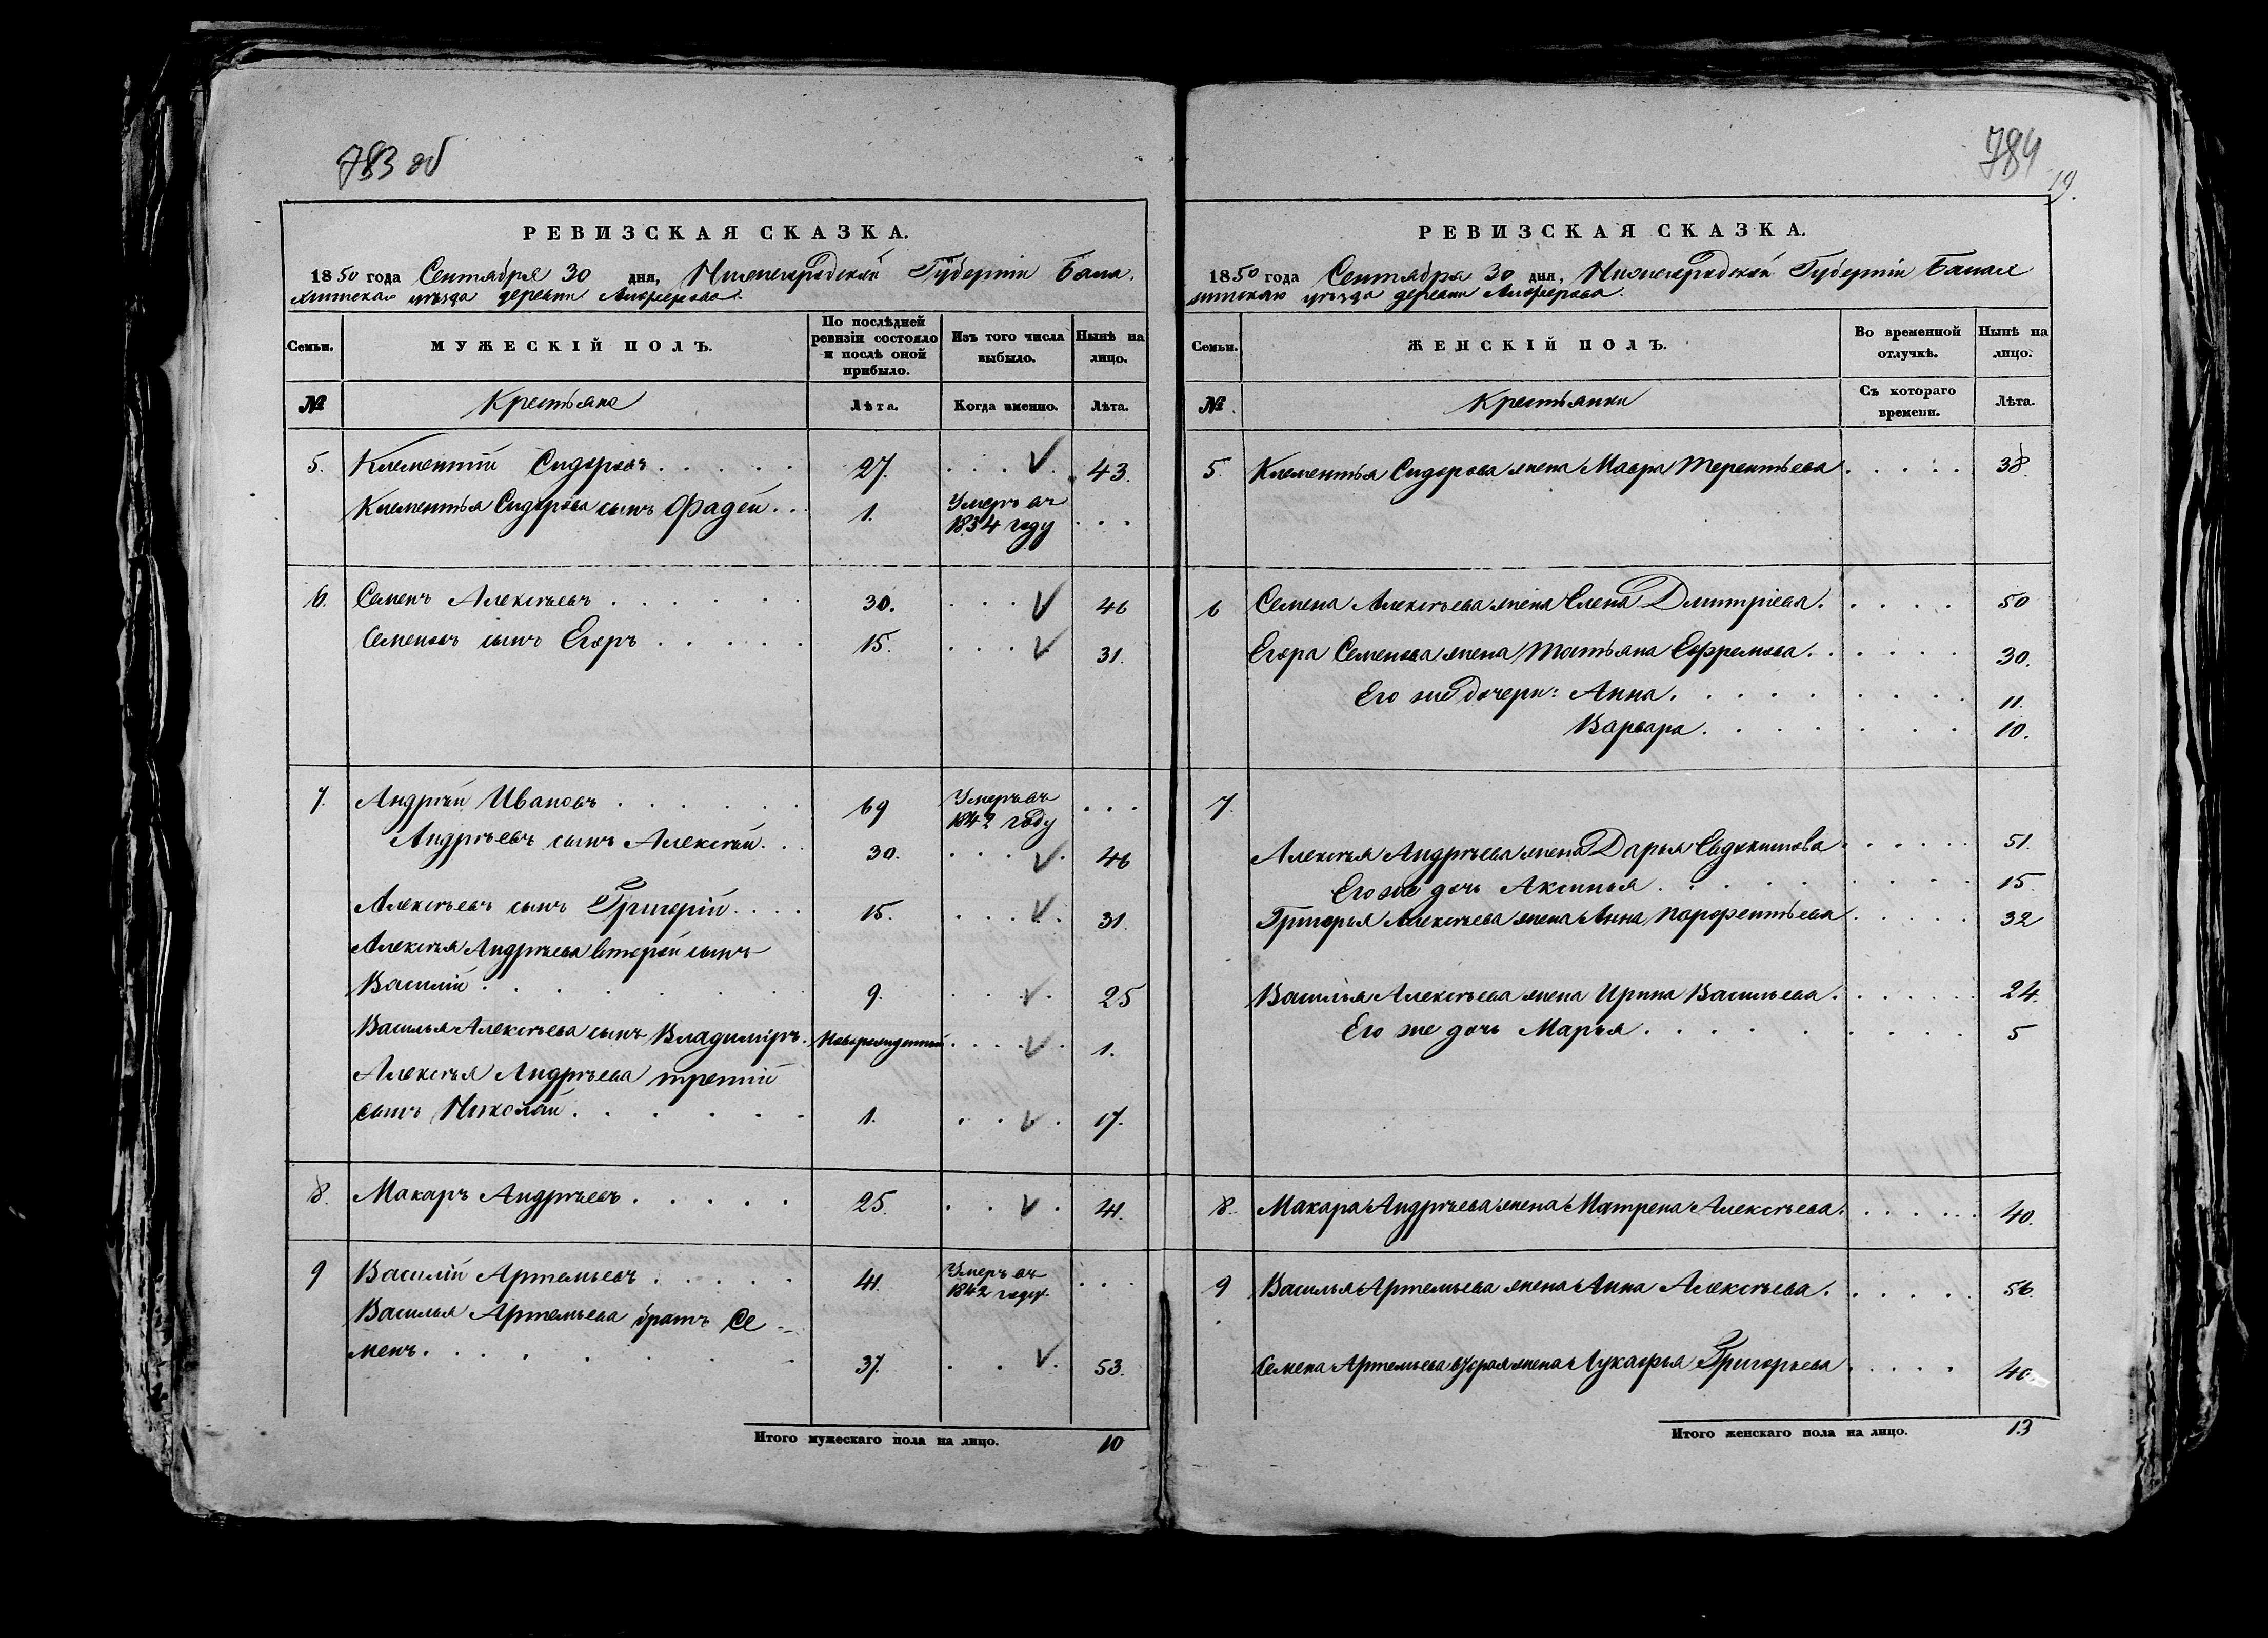 783 об
РЕВИЗСКАЯ СКАЗКА.
1850 года Сентября 30 дня, Нижегородской Губерніи Бала-
хнинскаго уѣзда деревни
Семьи.
МУЖЕСКІЙ ПОЛЪ.
По послѣдней ревизіи состояло и послѣ оной прибыло.
Изъ того числа выбыло.
Нынѣ на лицо.
№
Крестьяне
Лѣта.
Когда именно.
Лѣта.
5. Климентій Сидоровъ . . . . . 27. . . . V. 43.
Климентья Сидорова сынъ Фадей . . 1. Умеръ въ 1834 году . . .
6. Семенъ Алексѣевъ . . . . . . 30. . . . V 46
Семеновъ сынъ Егоръ . . . . . 15. . . . V 31.
7. Андрѣй Ивановъ . . . . . . 69 Умеръ въ 1842 году . . .
Андрѣевъ сынъ Алексѣй. . . 30. . . . V. 46
Алексѣевъ сынъ Григорій. . . . 15. . . . V. 31.
Алексѣя Андрѣева второй сынъ
Василій . . . . . . . 9. . . . V. 25
Василья Алексѣева сынъ Владиміръ. Новорожденный . . . . V. 1.
Алексѣя Андрѣева третій
сынъ Николай . . . . . . 1. . . V. 17.
8. Макаръ Андрѣевъ . . . . . 25. . . V . 41.
9 Василій Артемьевъ . . . . . 41. Умеръ въ 1842 году. . . .
Василья Артемьева братъ Се-
менъ. . . . . . . . 37. . . V. 53.
Итого мужескаго пола на лицо. 10
784
19.
РЕВИЗСКАЯ СКАЗКА.
1850 года Сентября 30 дня, Нижегородской Губерніи Балах
нинскаго уѣзда деревни
Семьи.
ЖЕНСКІЙ ПОЛЪ.
Во временной отлучкѣ.
Нынѣ на лицо.
№.
Крестьянки
Съ котораго времени.
Лѣта.
5. Климентья Сидорова жена Мавра Терентьева . . . . . 38.
6 Семена Алексѣева жена Елена Дмитріева. . . . . 50
Егора Семенова жена Татьяна Ефремова. . . . . . 30.
Его же дочери: Анна. . . . . . . . . 11.
Варвара. . . . . . . 10.
7.
Алексѣя Андрѣева жена Дарья Евдокимова . . . . . 51.
Его же дочь Аксинья . . . . . . . . 15.
Григорья Алексѣева жена Анна Парфентьева . . . . . 32
Василья Алексѣева жена Ирина Васильева. . . . . . 24.
Его же дочь Марья . . . . . . . . 5
8. Макара Андрѣева жена Матрена Алексѣева. . . . . . 40.
9 Василья Артемьева жена Анна Алексѣева. . . . . . 56.
Семена Артемьева вторая жена Лукафья Григорьева . . . . 40.
Итого женскаго пола на лицо. 13